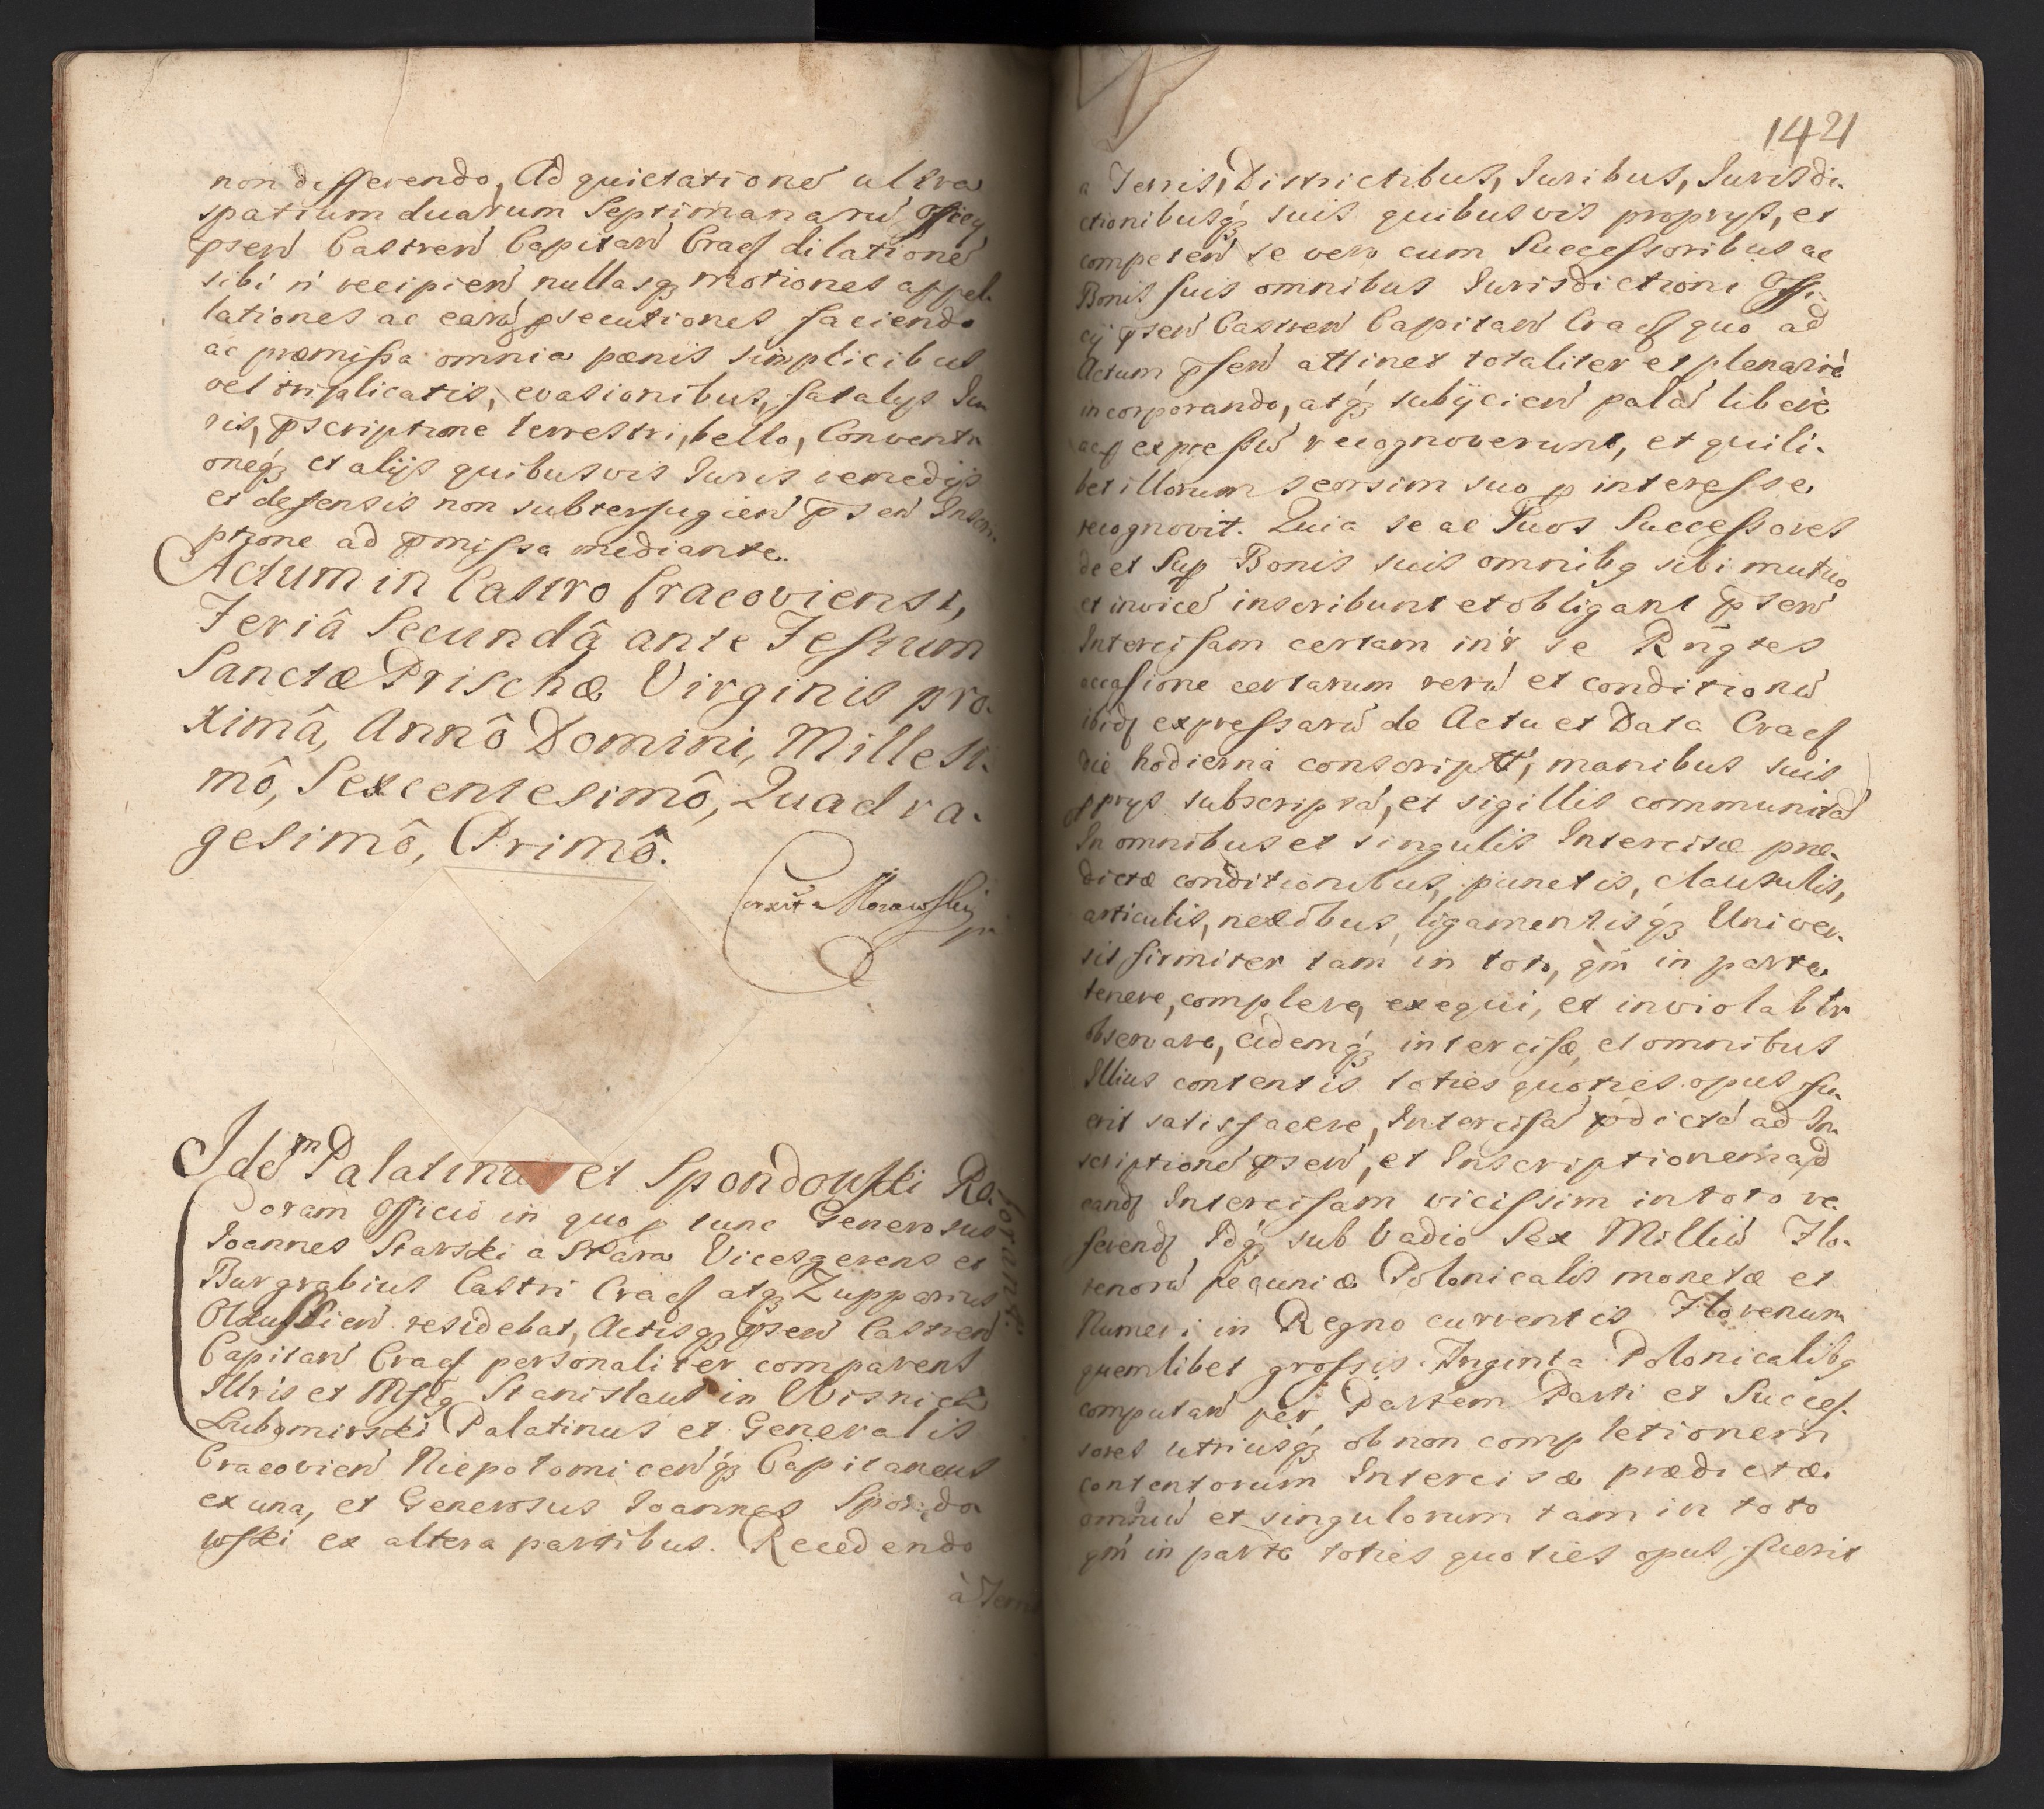 non differendo, Ad quietationē ultra
spatium duarum Septimanarū Officij
pñsen̄ Castren̄ Capitan̄ Crac̄ dilationē
sibi ń recipien̄ nullasqȝ motiones appel-
lationes ac earū psecutiones faciendo
ac præmissa omnia pænis simplicibus
vel triplicatis, evasionibus, fatalijs Iu
ris, p̄scriptione terrestri, bello, Conventi
oneqȝ et alijs quibusvis Iuris remedijs
et defensis non subterfugien̄ p̄sen̄ Inscri-
ptione ad p̄missa mediante.
Actum in Castro Cracoviensi,
Feriâ Secundâ ante Festum
Sanctæ Prischæ Virginis pro-
ximâ, Annô Domini, Millesi-
mô, Sexcentesimô, Quadra-
gesimô, Primô.
Correxit Morawski
Idem Palatinus et Spondowski Ro-
borant
Coram Officio in quo p tunc Generosus
Ioannes Starski a Skara Vicesgerens et
Burgrabius Castri Crac̄ atqȝ Zupparius
Olkuskien̄ residebat, Actisqȝ p̄sen̄ Castren̄
Capitan̄ Crac̄ personaliter comparens
Illris et Mgfcꝰ Stanislaus in Wisnicz
Lubomirski Palatinus et Generalis
Cracovien̄ Niepolomicen̄qȝ Capitaneus
ex una, et Generosus Ioannes Spondo
wski ex altera partibus. Recedendo
à Terris
1421
a Terris, Districtibus, Iuribus, Iurisdi-
ctionibusqȝ suis quibusvis proprijs, et
competen̄ se vero cum Successoribus ac
Bonis suis omnibus Iurisdictioni Offi-
cij p̄sen̄ Castren̄ Capitan̄ Crac̄ quo ad
Actum p̄sen̄ attinet totaliter et plenariè
incorporando, atqȝ subijcien̄ palā liberè
acqȝ expressū recognoverunt, et quili-
bet illorum seorsim suo p interesse
recognovit. Quia se ac Suos Successores
de et Sup Bonis suis omnibꝰ sibi mutuo
et invicē inscribunt et obligant p̄sen̄
Intercisam certam int̄ se Rn̄gtes
occasione certarum rerū et conditionū
ibidȝ expressarū de Actu et Data Crac̄
die hodierna conscript̄, manibus suis
pprijs subscriptā, et sigillis communitā
In omnibus et singulis Intercisæ præ-
dictæ conditionibus, punctis, clausulis,
articulis, nexibus, ligamentisqȝ Univer-
sis firmiter tam in toto, qm̄ in parte
tenere, complere, exequi, et inviolabl̄r
observare, eidemqȝ intercisæ, et omnibus
Illius contentis toties quoties opus fu-
erit satisfacere, Intercisā p̄dictā ad In-
scriptionē p̄sen̄, et Inscriptionem ad
eandȝ Intercisam vicissim in toto re
ferendȝ Idqȝ sub Vadio Sex Milliū Flo-
renorū pecuniæ Polonicalis monetæ et
Numeri in Regno currentis Florenum
quemlibet grossis Triginta Polonicalibꝰ
computan̄ per Partem Parti et Succes-
sores utriusqȝ ob non completionem
contentorum Intercisæ prædictæ
omniū et singulorum tam in toto
qm̄ in parte toties quoties opus fuerit